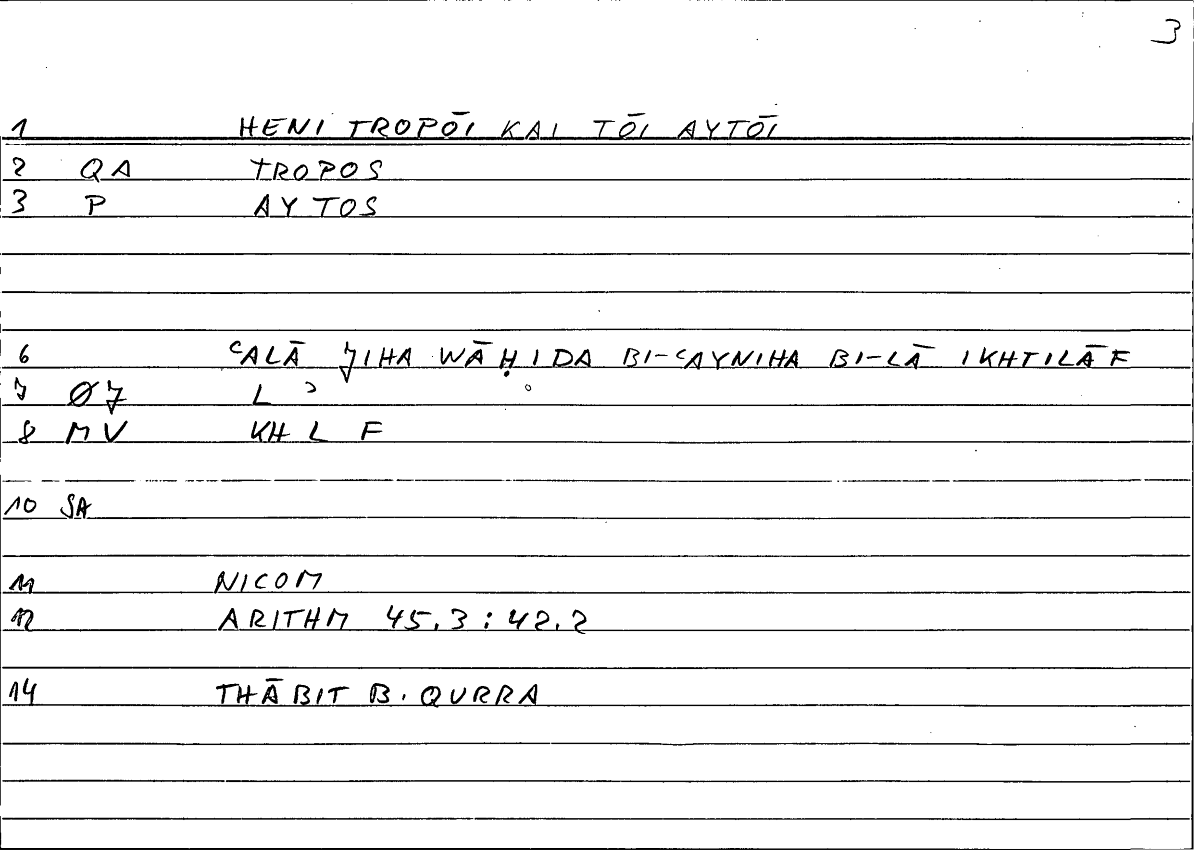 3
1 HENI TROPŌI KAI TŌI AYTŌI
2 QA TROPOS
3 P AYTOS
6 ʿALĀ JIHA WĀḤIDA BI-ʿAYNIHA BI-LĀ IKHTILĀF
7 ØJ L ʾ
8 MV KH L F
10 SA
11 NICOM
12 ARITHM 45.3:42.2
14 THĀBIT B. QURRA